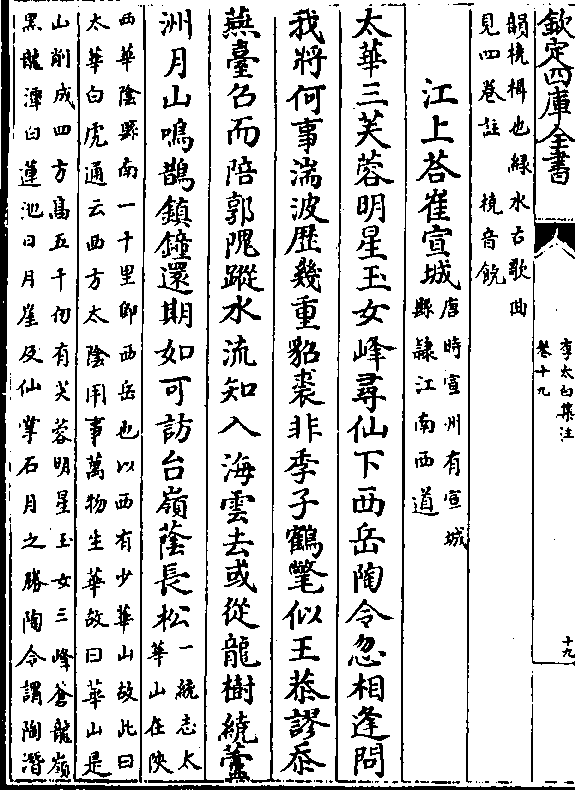 欽定四庫全書
李太白集注
卷十九
十九
韻橈楫也綠水古歌曲
見四卷註 橈音饒
江上答崔宣城
唐時宣州有宣城
縣隸江南西道
太華三芙蓉明星玉女峰尋仙下西岳陶令忽相逢問
我將何事湍波歷幾重貂裘非季子鶴氅似王恭謬忝
燕臺召而陪郭隗蹤水流知入海雲去或從龍樹繞蘆
洲月山鳴鵲鎮鐘還期如可訪台嶺蔭長松
一統志太
華山在陝
西華陰縣南一十里即西岳也以西有少華山故此曰
太華白虎通云西方太陰用事萬物生華故曰華山是
山削成四方高五千仞有芙蓉明星玉女三峰蒼龍嶺
黑龍潭白蓮池日月崖及仙掌石月之勝陶令謂陶潛